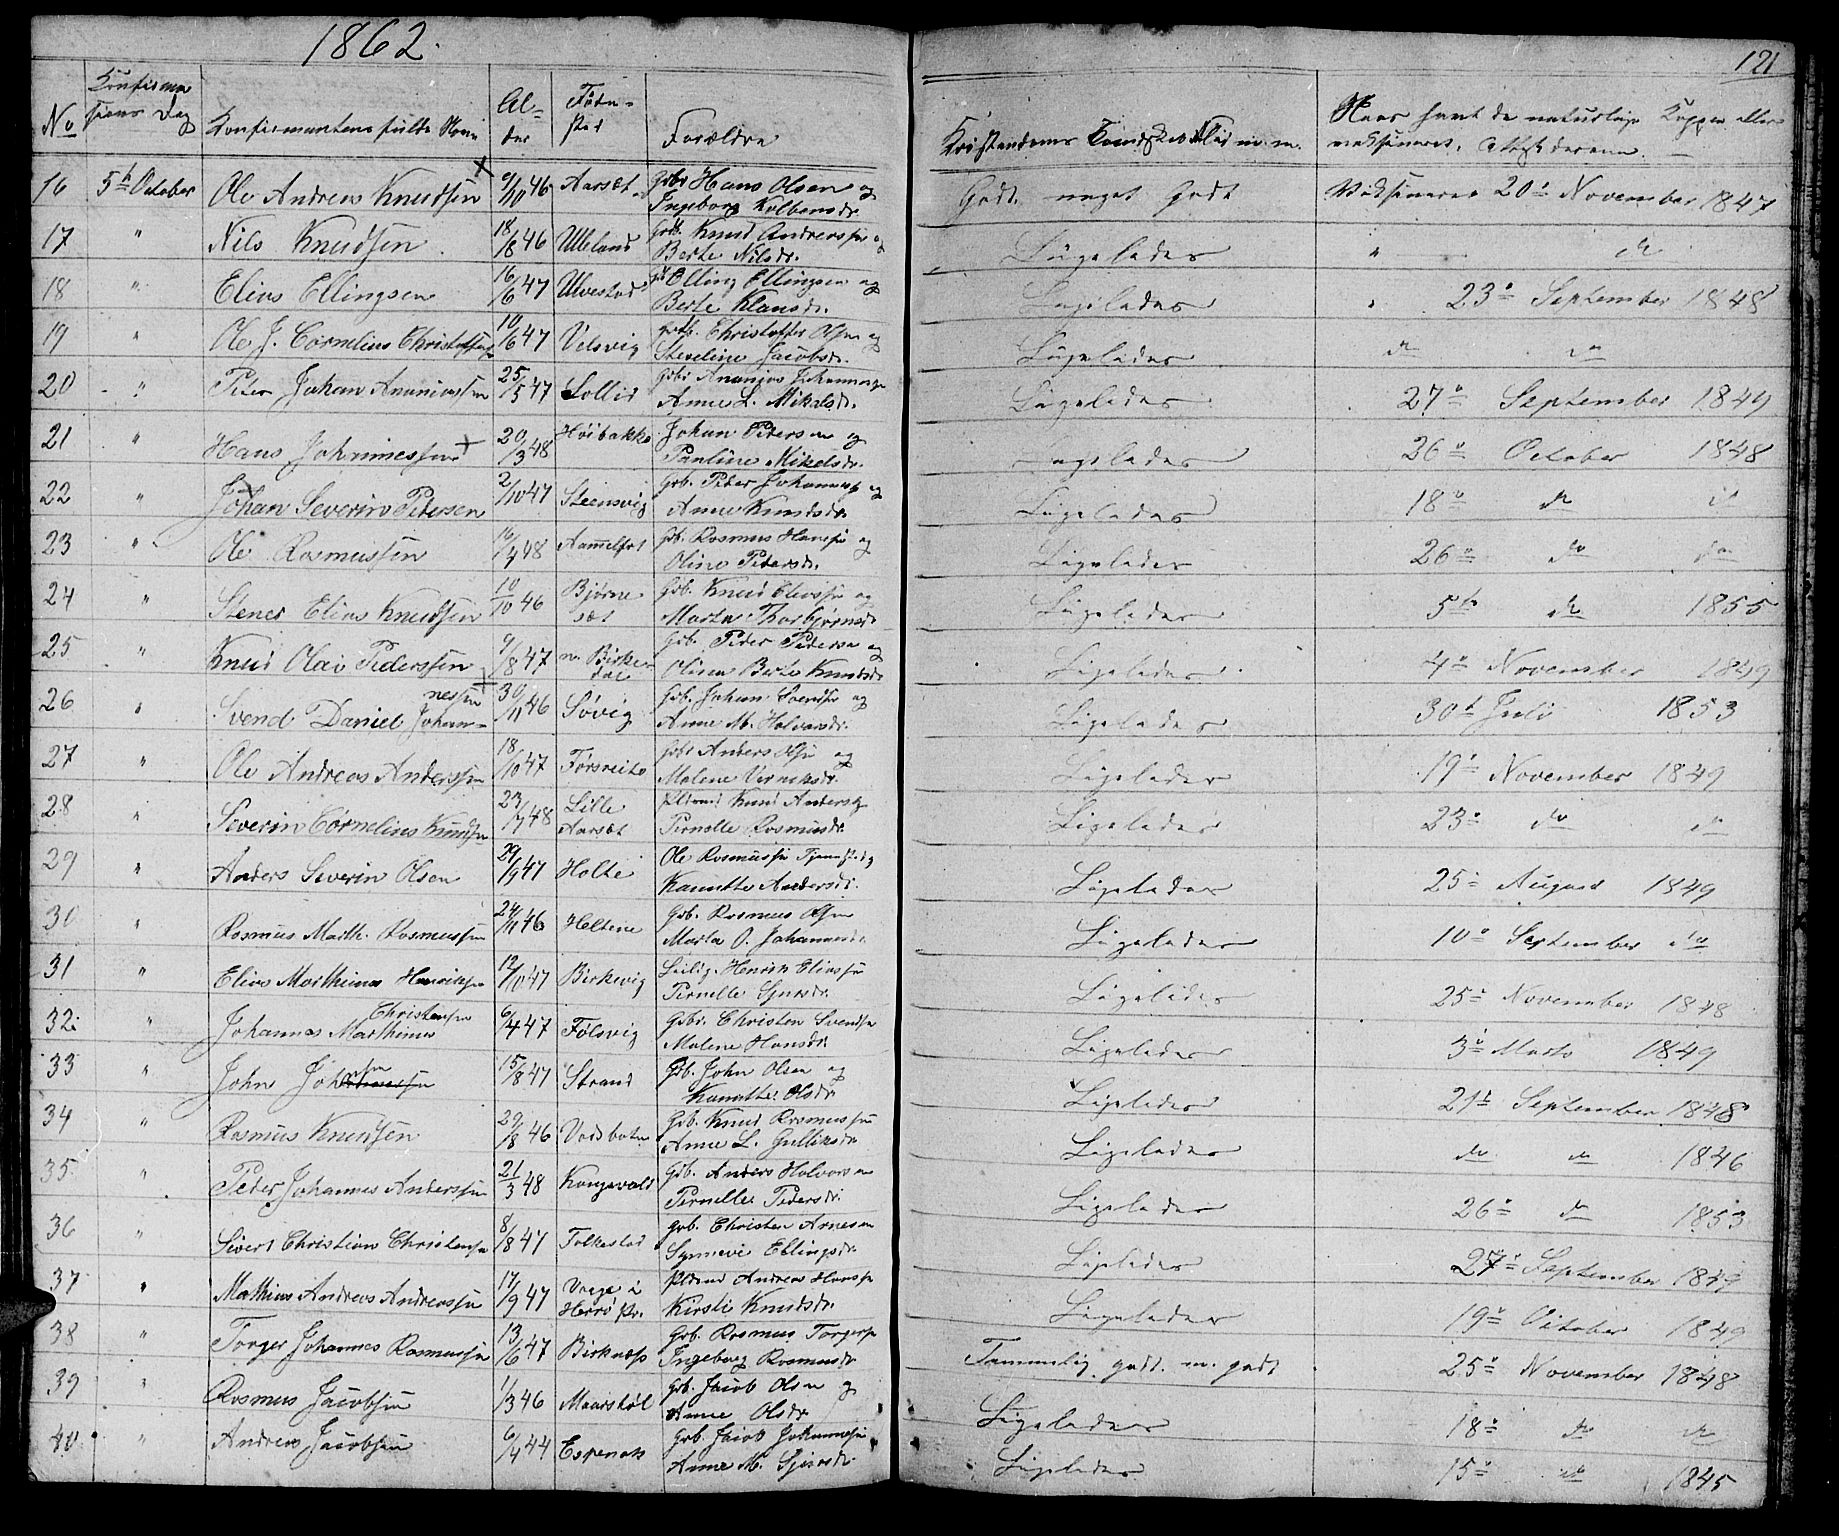 1862.
121
No
Konfirma
sions Dag
Konfirmantens fulde Navn
Al-
der
Føde-
sted
Forældre
Kristendoms Kundskab Flid m.m.
Naar havt de naturlige Kopper eller
vaksineret. Attest derom.
16 5te October Ole Andreas Knudsen 9/10 46 Aarset Gbr Hans Olsen og
Ingeborg Kolbensdr. Godt. meget Godt Vaksineret 20de November 1847
17 " Nils Knudsen 18/8 46 Ulleland Gbr. Knud Anderssen og
Berte Nilsdr. Ligeledes " do
18 " Elias Ellingsen 16/6 47 Ulvestad Gbr Elling Ellingsen og
Berte Klausdr. Ligeledes " 23de September 1848
19 " Ole J. Cornelius Christoffersen 10/6 47 Velsvig Gbr. Christoffer Olsen og
Steseline Jacobsdr. Ligeledes do do
20 " Peter Johan Ananiassen 25/5 47 Sollid Gbr Ananias Johannesen
Anne L. Mikalsdr. Ligeledes 27de September 1849
21 " Hans Johannessen 20/3 48 Høibakke Johan Petersen og
Pauline Mikelsdr. Ligeledes 26de October 1848
22 " Johan Severin Petersen 2/10 47 Steensvig Gbr. Peter Johannesen og
Anne Knudsdr. Ligeledes 18de do do
23 " Ole Rasmussen 16/4 48 Aamelfot Gbr. Rasmus Hansen og
Oline Petersdr. Ligeledes 26de do do
24 " Stener Elias Knudsen 10/10 46 Bjørne
set Gbr. Knud Eliassen og
Marta Thorbjørnsdr. Ligeledes 5te do 1855
25 " Knud Olai Pederssen 9/8 47 n. Birke-
dal Gbr. Peder Pedersen og
Olisen Berte Knudsdr. Ligeledes 4de November 1849
26 " Svend Daniel Johan-
nessen 30/11 46 Søvig Gbr. Johan Svendsen og
Anne M. Halvorsdr. Ligeledes 30te Juli 1853
27 " Ole Andreas Anderssen 18/10 47 Førsreite Gbr Anders Olsen og
Malene Verniksdr. Ligeledes 19de November 1849
28 " Severin Cornelius Knudsen 23/7 48 Lille
Aarset Pldsmd Knud Anderss.
Pernelle Rasmusdr. Ligeledes 23de do do
29 " Anders Severin Olsen 29/9 47 Holte Ole Rasmussen
Kanutte Andersdr. Ligeledes 25de August 1849
30 " Rasmus Math. Rasmussen 24/11 46 Heltene Gbr. Rasmus Olsen
Marta O. Johannesdr. Ligeledes 10de September do
31 " Elias Mathias Henriksen 12/10 47 Birkevig Leilig. Henrik Eliassen
Pernelle Sjursdr. Ligeledes 25de November 1848
32 " Johannes Marthinus
Christensen 6/4 47 Følsvig Gbr. Christen Svendsen
Malene Hansdr. Ligeledes 3de Marts 1849
33 " John Johnsen 15/8 47 Strand Gbr. John Olsen og
Kanutte Olsdr. Ligeledes 21de September 1848
34 " Rasmus Knudsen 29/8 46 Vadsboten Gbr. Knud Rasmussen
Anne L. Gulliksdr. Ligeledes do do 1846
35 " Peder Johannes Anderssen 21/3 48 Kongsvold Gbr. Anders Halvorsen
Pernelle Pedersdr. Ligeledes 26de do 1853
36 " Sivert Christian Christensen 8/8 47 Folkestad Gbr. Christen Arnesen
Synnevi Ellingsdr. Ligeledes 27de September 1849
37 " Mathias Andreas Andreassen 17/9 47 Vaage i
Herrø Pr. Pldsmd Andreas Hanssen
Kirsti Knudsdr. Ligeledes 19de October 1849
38 " Torger Johannes Rasmussen 13/6 47 Birknæs Gbr. Rasmus Torgersen
Ingeborg Rasmusdr. Temmelig godt. m. godt 25de November 1848
39 " Rasmus Jacobsen 1/3 46 Maarstøl Gbr. Jacob Olsen og
Anne Olsdr. Ligeledes 18de do do
40 " Andreas Jacobsen 6/4 44 Espenæs Gbr. Jacob Johannesen
Anne M. Sjursdr. Ligeledes 15de do 1845